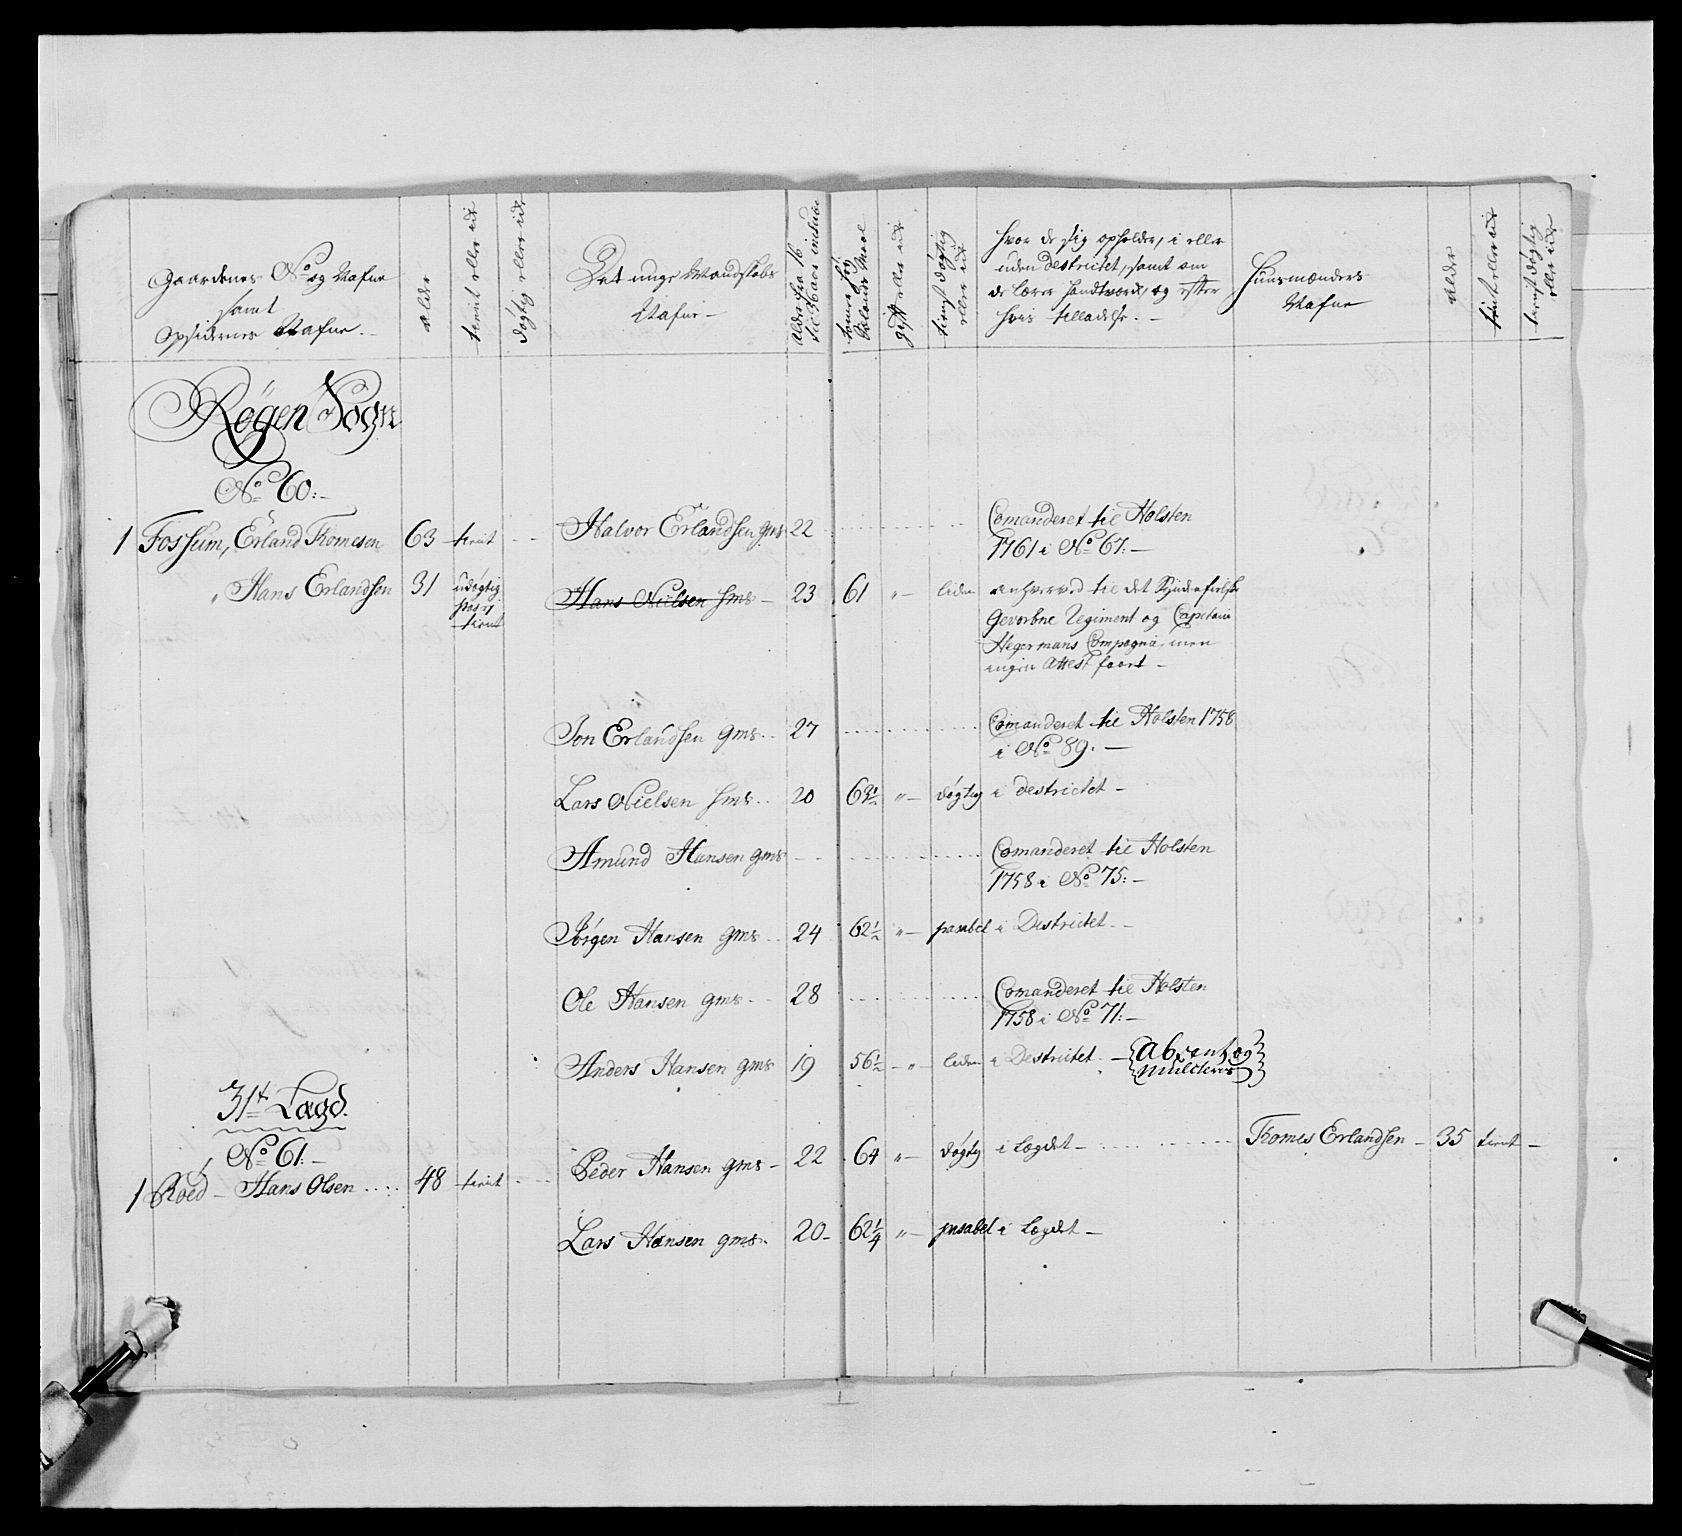 Gaardenes No og Nafne
samt
Opsidernes Nafne.
alder
tient eller ei
døgtig eller ei
Det unge Mandskabs
Nafne
Alder fra 16
til 36 aar inclusive
gift eller ei
tienstdøgtig
eller ei
hvor de sig opholder, i eller
uden destrictet, samt om
de lærer handtverk, og efter
hvis tilladelse.
Huusmænders
Nafne
alder
tient eller ei
tienstdøgtig
eller ei
Røgen Sogn
No 60:-
1 Fossum, Erland Tomesen 63 tient
Halvor Erlandsen gms 22
Comanderet til Holsten
1761 i No 67:-
" Hans Erlandsøn 31 udøgtig
tient
Hans Nielsen hms - 23 61 " - liden
anhverved til det Syndenfielske
Gevorbne Regiment og Capitain
Hegermans Compagnie, men
ingen attest faaet -
Jon Erlandsen gms .. 27
Comanderet til Holsten 1758
i No 89. -
Lars Nielsen hms .. 20 63½ " - døgtig i destrictet -
Amund Hansen gms
Comanderet til Holsten
1758 i No 75:-
Jørgen Hansen gms .. 24 62½ " - passabel i Destrictet -
Ole Hansen gms - 28
Comanderet til Holsten
1758 i No 71:-
Anders Hansen gms 19 56½ - " - liden i Destrictet. - {Absent og
mulcteres}
31te Lægd.
No 61:-
1 Røed - Hans Olsen .... 48 tient
Peder Hansen gms - 22 64 " - døgtig i Lægdet -
Tomes Erlandsen - 35 tient -
Lars Hansen gms. 20 - 62¼ " - passabel i Lægdet -